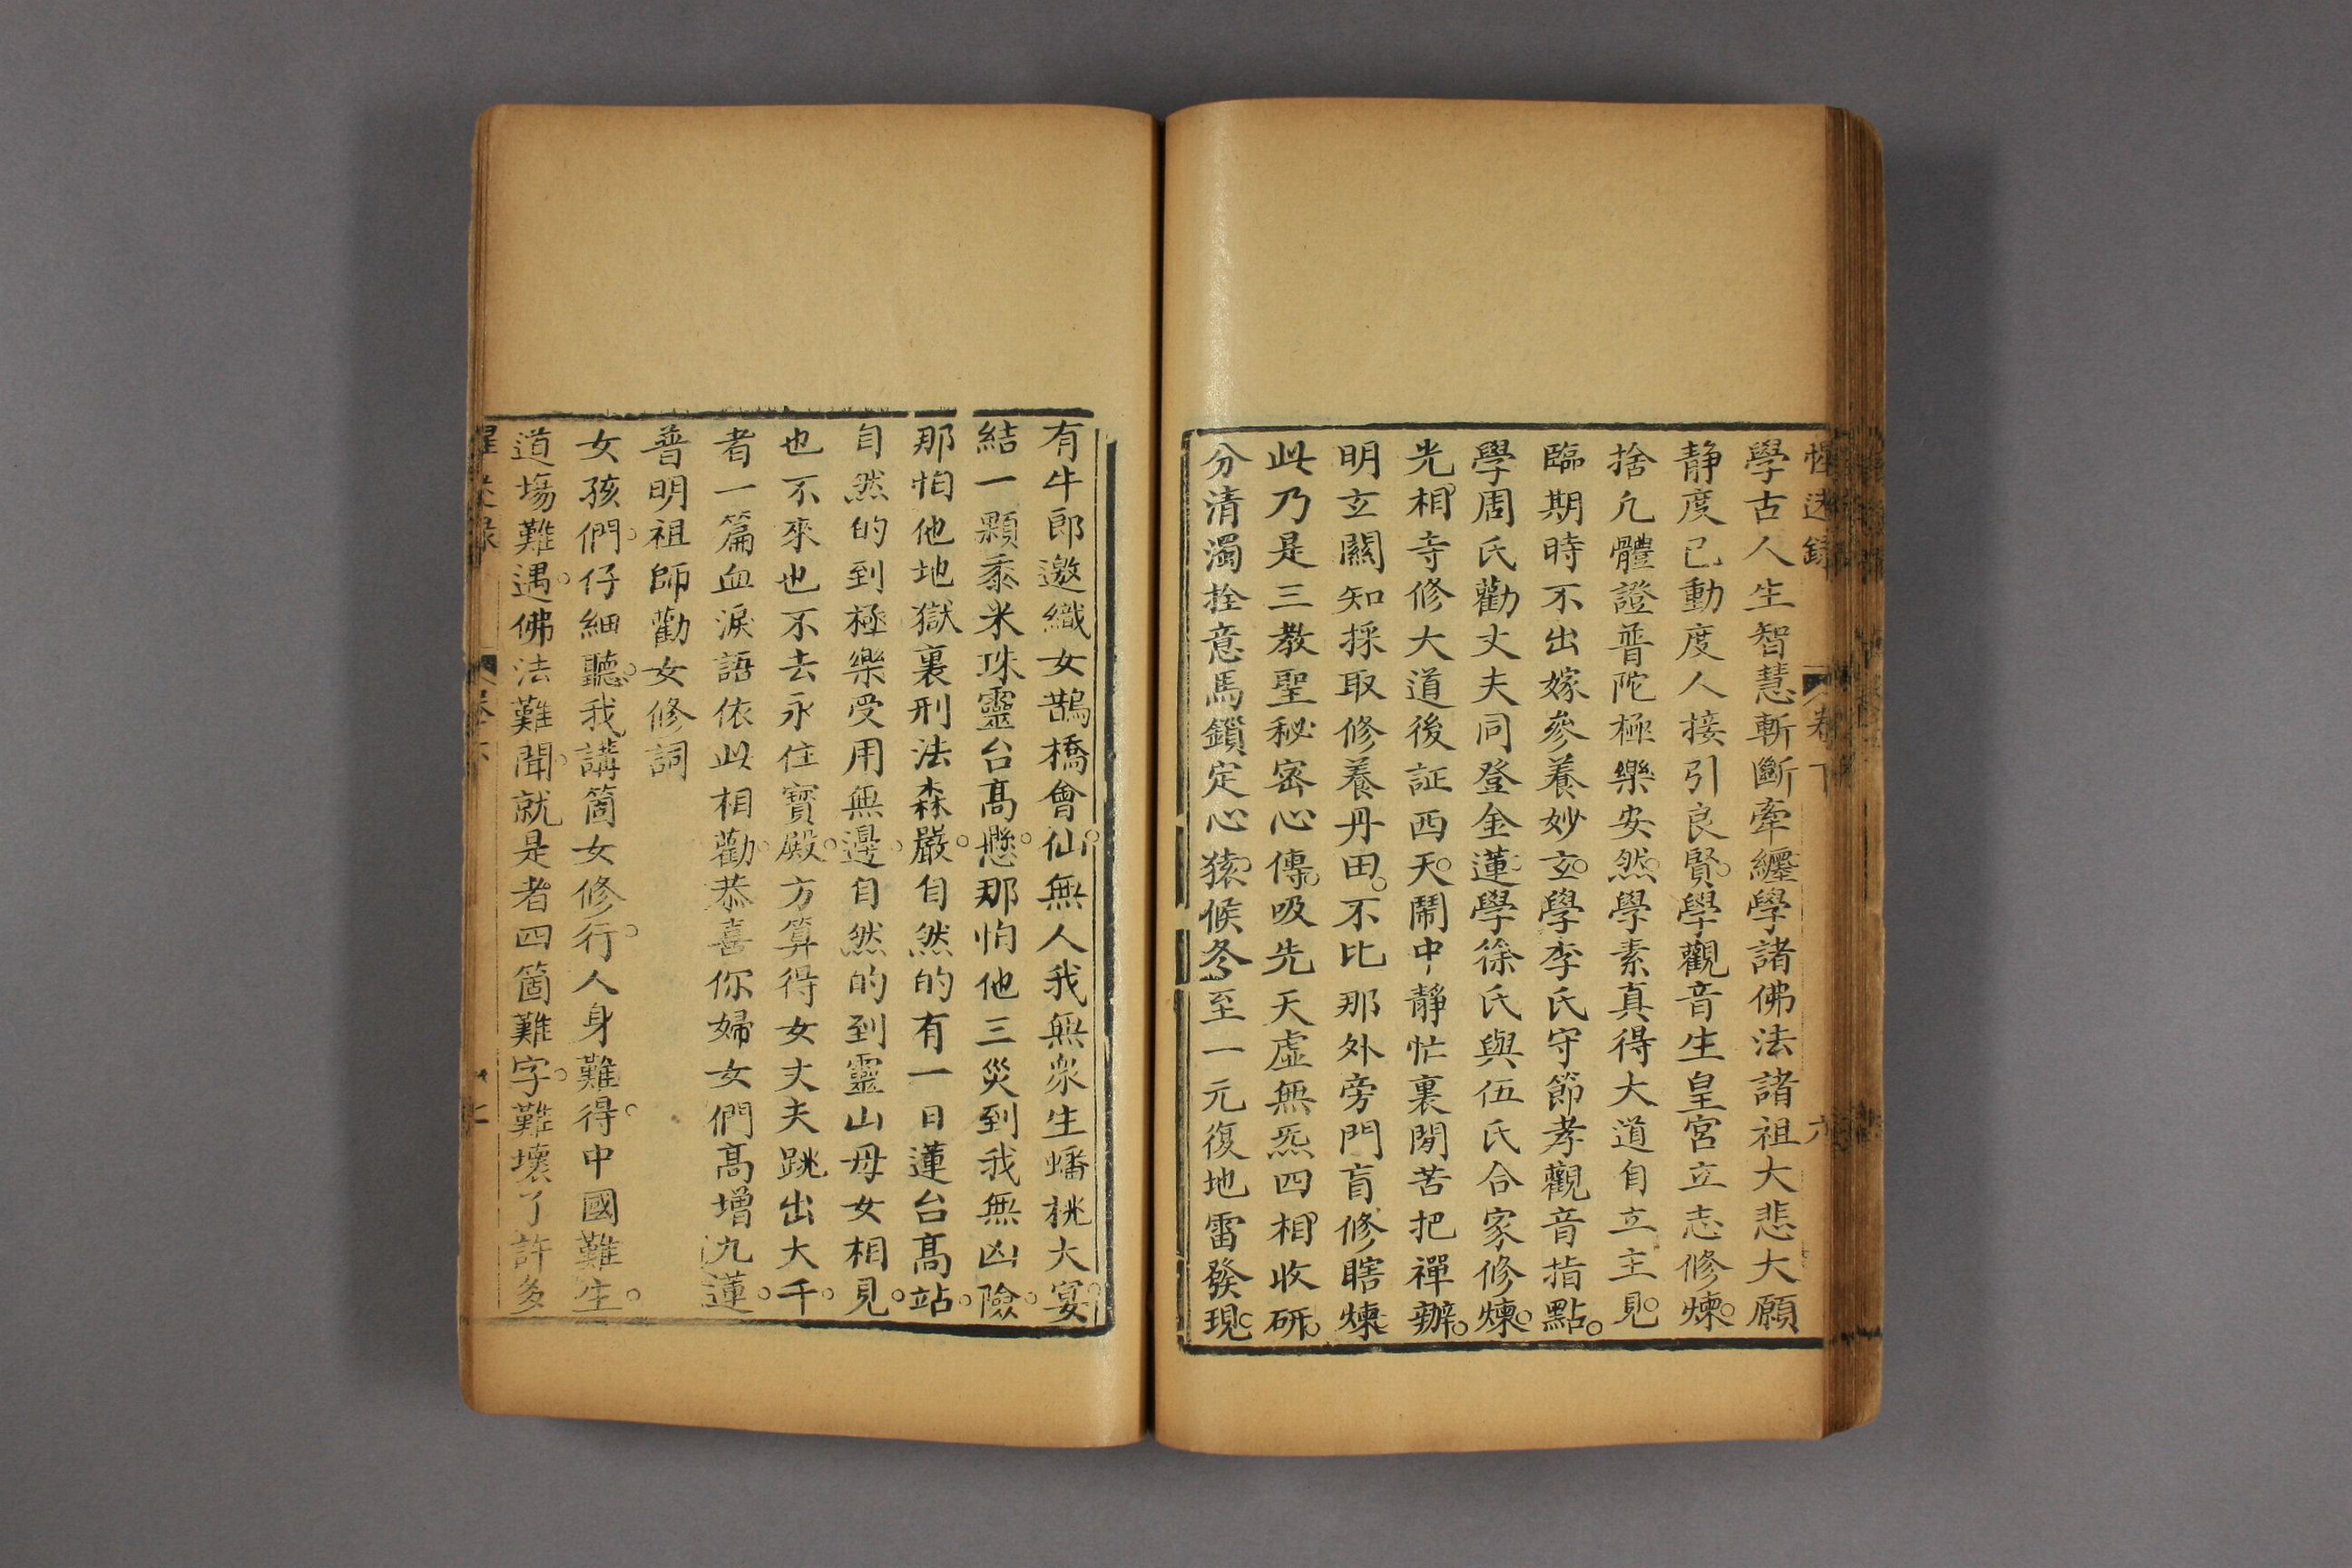 惺迷錄 卷下 六
學古人生智慧斬斷牽纏學諸佛法諸祖大悲大願
静度己動度人接引良賢。學觀音生皇宮立志修煉。
捨凢體證普陀極樂安然。學素真得大道自立主見。
臨期時不出嫁參養妙玄。學李氏守節孝觀音指點。
學周氏勸丈夫同登金蓮。學徐氏與伍氏合家修煉。
光相寺修大道後証西天。鬧中靜忙裏閒苦把禪辦。
明玄關知採取修養丹田。不比那外旁門盲修瞎煉。
此乃是三教聖秘密心傳。吸先天虛無炁四相收研。
分清濁拴意馬鎖定心猿。候冬至一元復地雷發現。
有牛郎邀織女鵲橋會仙。無人我無衆生蟠桃大宴。
結一顆黍米珠靈台髙懸。那怕他三災到我無凶險。
那怕他地獄裏刑法森嚴。自然的有一日蓮台髙站。
自然的到極樂受用無邊。自然的到靈山母女相見。
也不來也不去永住寳殿。方算得女丈夫跳出大千。
者一篇血淚語依此相勸。恭喜你婦女們髙增九蓮。
普明祖師勸女修詞
女孩們。仔細聽。我講箇女修行。人身難得。中國難生。
道塲難遇。佛法難聞。就是者四箇難字。難壞了許多